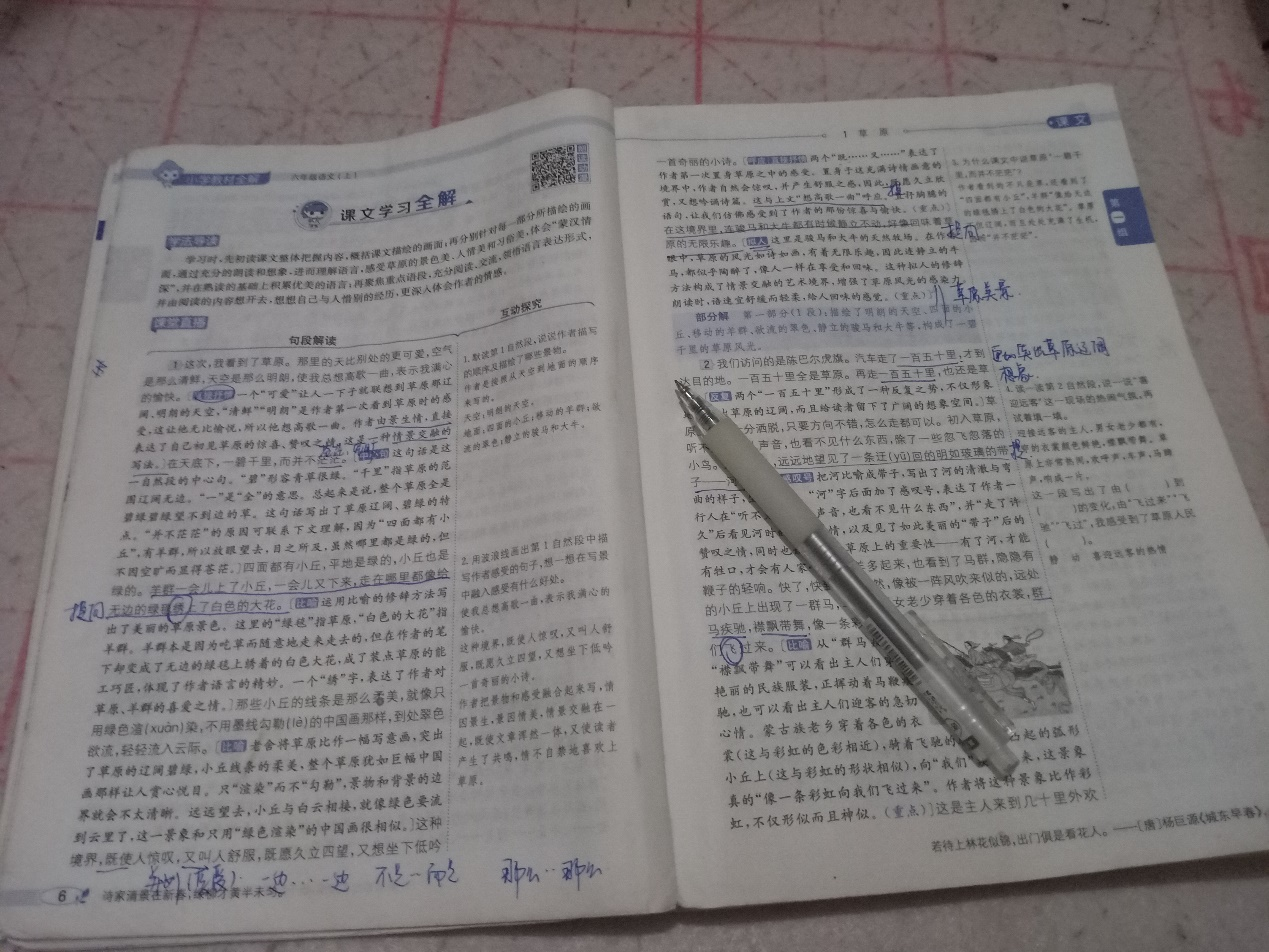 小学教材全解 六年级语文(上)
课文学习全解
学法导读
学习时,先初读课文整体把握内容,概括课文描绘的画面;再分别针对每一部分所描绘的画
面,通过充分的朗读和想象,进而理解语言,感受草原的景色美、人情美和习俗美,体会“蒙汉情
深”,并在熟读的基础上积累优美的语言;再聚焦重点语段,充分阅读、交流,领悟语言表达形式,
并由阅读的内容想开去,想想自己与人惜别的经历,更深入体会作者的情感。
课堂直播
句段解读
1 这次,我看到了草原。那里的天比别处的更可爱,空气
是那么清鲜,天空是那么明朗,使我总想高歌一曲,表示我满心
的愉快。一个“可爱”让人一下子就联想到草原那辽
阔、明朗的天空,“清鲜”“明朗”是作者第一次看到草原时的感
受,这让他无比愉悦,所以他想高歌一曲。作者由景生情,直接
表达了自己初见草原的惊喜、赞叹之情。这是一种情景交融的
写法。]在天底下,一碧千里,而并不茫茫。[中心句 这句话是这
一自然段的中心句。“碧”形容青草很绿。“千里”指草原的范
围辽阔无边。“一”是“全”的意思。总起来是说,整个草原全是
碧绿碧绿望不到边的草。这句话写出了草原辽阔、碧绿的特
点。“并不茫茫”的原因可联系下文理解,因为“四面都有小
丘”,有羊群,所以放眼望去,目之所及,虽然哪里都是绿的,但
不因空旷而显得苍茫。]四面都有小丘,平地是绿的,小丘也是
绿的。羊群一会儿上了小丘,一会儿又下来,走在哪里都像给
提问
无边的绿毯绣上了白色的大花。[比喻 运用比喻的修辞方法写
出了美丽的草原景色。这里的“绿毯”指草原,“白色的大花”指
羊群。羊群本是因为吃草而随意地走来走去的,但在作者的笔
下却变成了无边的绿毯上绣着的白色大花,成了装点草原的能
工巧匠,体现了作者语言的精妙。一个“绣”字,表达了作者对
草原、羊群的喜爱之情。]那些小丘的线条是那么柔美,就像只
用绿色渲(xuàn)染,不用墨线勾勒(lè)的中国画那样,到处翠色
欲流,轻轻流入云际。[比喻 老舍将草原比作一幅写意画,突出
了草原的辽阔碧绿,小丘线条的柔美,整个草原犹如巨幅中国
画那样让人赏心悦目。只“渲染”而不“勾勒”,景物和背景的边
界就会不太清晰。远远望去,小丘与白云相接,就像绿色要流
到云里了,这一景象和只用“绿色渲染”的中国画很相似。]这种
境界,既使人惊叹,又叫人舒服,既愿久立四望,又想坐下低吟
一边…一边 不是…而是 那么…那么
6 诗家清景在新春,绿柳才黄半未匀。
互动探究
1. 默读第1自然段,说说作者描写
的顺序及描绘了哪些景物。
作者是按照从天空到地面的顺序
来写的。
天空:明朗的天空。
地面:四面的小丘;移动的羊群;欲
流的翠色;静立的骏马和大牛。
2. 用波浪线画出第1自然段中描
写作者感受的句子,想一想在写景
中融入感受有什么好处。
使我总想高歌一曲,表示我满心的
愉快。
这种境界,既使人惊叹,又叫人舒
服,既愿久立四望,又想坐下低吟
一首奇丽的小诗。
作者把景物和感受融合起来写,情
因景生,景因情美,情景交融在一
起,既使文章浑然一体,又使读者
产生了共鸣,情不自禁地喜欢上
草原。
1 草 原
课文
第一组
一首奇丽的小诗。两个“既……又……”表达了
作者第一次置身草原之中的感受。置身于这充满诗情画意的
境界中,作者自然会惊叹,并产生舒服之感,因此,愿久立欣
赏,又想吟诵诗篇。这与上文“想高歌一曲”呼应,抒胸臆的
语句,让我们仿佛感受到了作者的那份惊喜与愉快。(重点)]
在这境界里,连骏马和大牛都有时候静立不动,好像回味着草
原的无限乐趣。[拟人 这里是骏马和大牛的天然牧场。在作
眼中,草原的风光如诗如画,有着无限乐趣,因此连静立的牛
马,都似乎陶醉了,像人一样在享受和回味。这种拟人的修辞
方法构成了情景交融的艺术境界,增强了草原风光的感染力
朗读时,语速宜舒缓而轻柔,给人回味的感觉。(重点)]
提问
草原美景
部分解 第一部分(1段):描绘了明朗的天空、四面的小
丘、移动的羊群、欲流的翠色、静立的骏马和大牛等,构成了一碧
千里的草原风光。
2 我们访问的是陈巴尔虎旗。汽车走了一百五十里,才到
达目的地。一百五十里全是草原。再走一百五十里,也还是草
[反复 两个“一百五十里”形成了一种反复之势,不仅形象
出草原的辽阔,而且给读者留下了广阔的想象空间。]草
十分洒脱,只要方向不错,怎么走都可以。初入草原,
听不 声音,也看不见什么东西,除了一些忽飞忽落的
小鸟。 远远地望见了一条迂(yū)回的明如玻璃的带
子——河 感叹号 把河比喻成带子,写出了河的清澈与弯
曲的样子, “河”字后面加了感叹号,表达了作者一
行人在“听不 声音,也看不见什么东西”,并“走了许
久”后看见河时 情,以及见了如此美丽的“带子”后的
赞叹之情,同时也 草原上的重要性——有了河,才能
有牲口,才会有人家 多起来,也看到了马群,隐隐有
鞭子的轻响。快了,快 然,像被一阵风吹来似的,远处
的小丘上出现了一群马, 女老少穿着各色的衣裳,群
马疾驰,襟飘带舞,像一条彩
们飞过来。[比喻 从“群马
“襟飘带舞”可以看出主人们穿
艳丽的民族服装,正挥动着马鞭
驰,也可以看出主人们迎客的急切
心情。蒙古族老乡穿着各色的衣
裳(这与彩虹的色彩相近),骑着飞驰的 起的弧形
小丘上(这与彩虹的形状相似),向“我们” 来,这景象
真的“像一条彩虹向我们飞过来”。作者将这种景象比作彩
虹,不仅形似而且神似。(重点)]这是主人来到几十里外欢
3. 为什么课文中说草原“一碧千
里,而并不茫茫”?
4. 读一读第2自然段,说一说“襄
迎远客”这一现场的热闹气氛,再
试着填一填。
迎接远客的主人,男女老少都有,
的衣裳颜色鲜艳,襟飘带舞。草
原上非常热闹,欢呼声、车声、马蹄
声,响成一片。
这一段写出了由( )到
( )的变化,由“飞过来”“飞
驰”“飞过”,我感受到了草原人民
( )。
静 动 喜迎远客的热情
若待上林花似锦,出门俱是看花人。——[唐]杨巨源《城东早春》